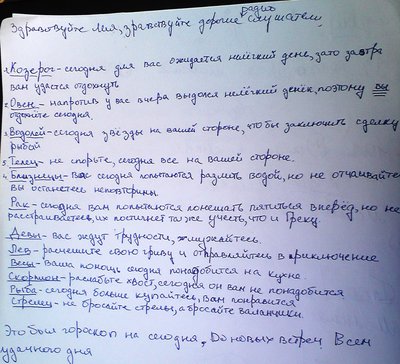 радио
Здравствуйте Лия, здравствуйте дорогие слушатели,
1. Козерог - сегодня для вас ожидается нелёгкий день, зато завтра
вам удастся отдохнуть
2. Овен - напротив у вас вчера выдолся нелёгкий денёк, поэтому вы
отдохните сегодня.
3. Водолей - сегодня звёзды на вашей стороне, чтобы заключить сделку
с рыбой
5. Телец - не спорьте, сегодня все на вашей стороне.
4. Близнецы - вас сегодня попытаются разлить водой, но не отчаивайтесь
вы останетесь неповторимы.
Рак - сегодня вам попытаются помешать пятиться вперёд, но не
расстраивайтесь, их постигнет та же учесть, что и Греку.
Девы - вас ждут трудности, мужайтесь.
Лев - расчешите свою гриву и отправляйтесь в приключение
Весы - ваша помощь сегодня понадобится на кухне.
Скорпион - расслабьте хвост, сегодня он вам не понадобится
Рыба - сегодня больше купайтесь, вам понравится
Стрелец - не бросайте стрелы, а бросайте валанчики.
Это был гороскоп на сегодня, До новых встреч Всем
удачного дня